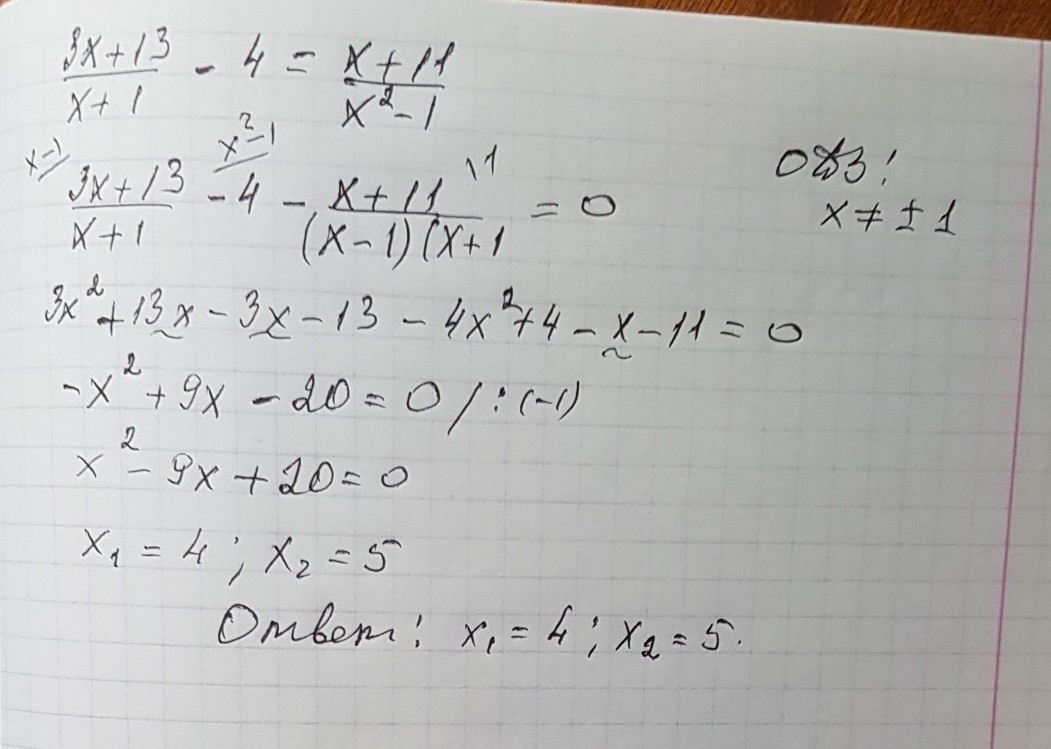 (3x+13)/(x+1) - 4 = (x+11)/(x²-1)
x-1/ (3x+13)/(x+1) - 4 x²-1/ - (x+11)/((x-1)(x+1) \1 = 0
ОДЗ:
x ≠ ± 1
3x²+13x-3x-13-4x²+4-x-11=0
-x²+9x-20=0 /:(-1)
x²-9x+20=0
x₁=4; x₂=5
Ответ: x₁=4; x₂=5.